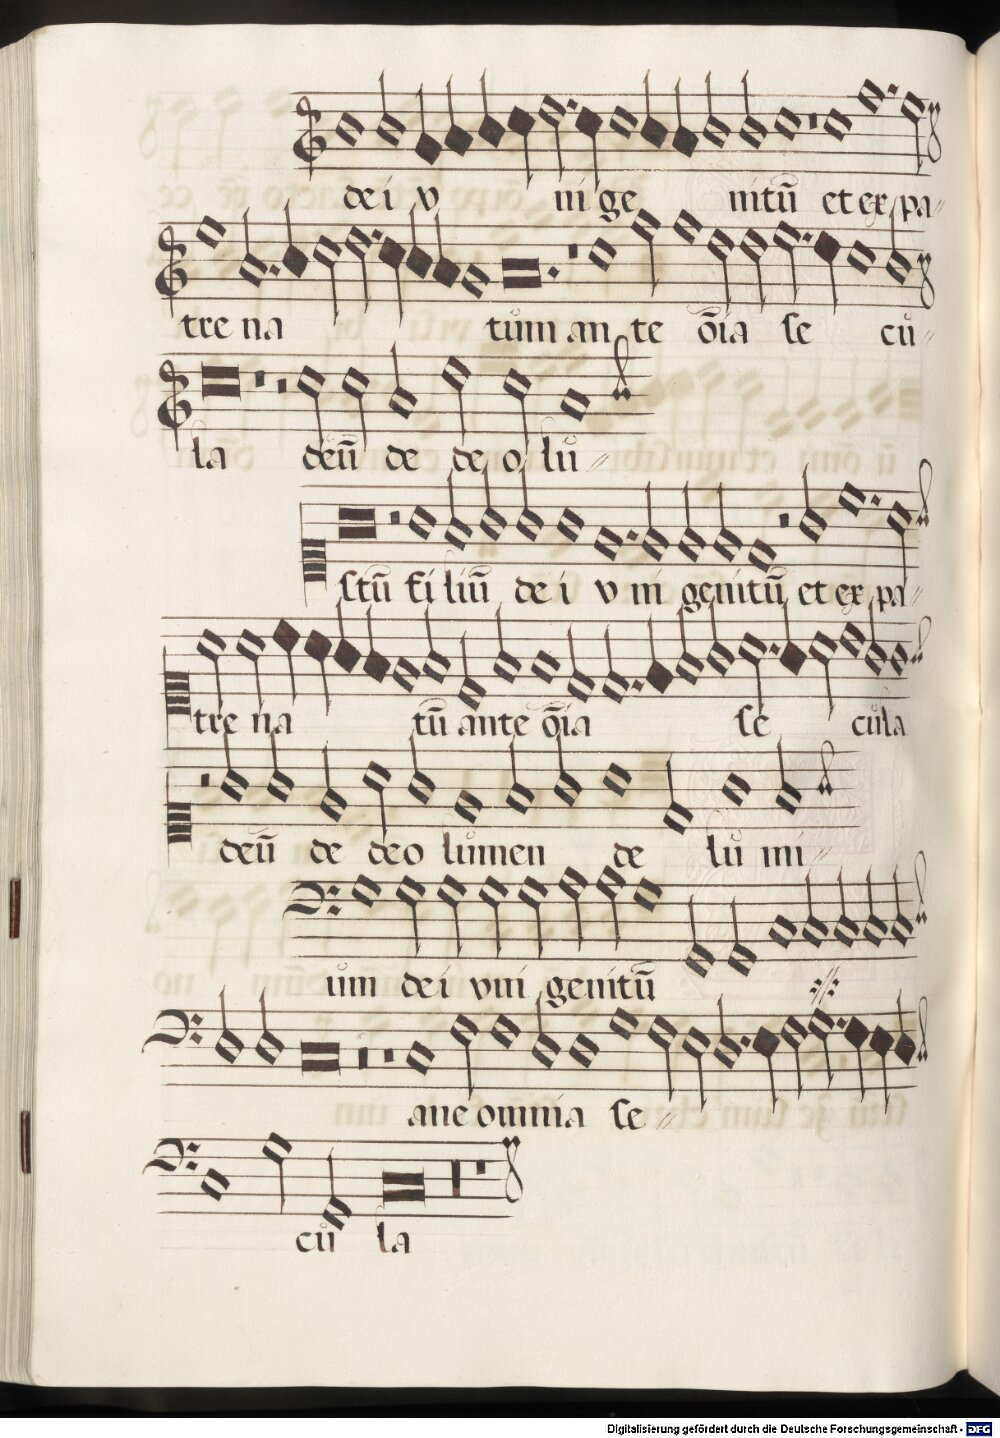 dei v ni ge nitū et ex pa
tre na tum an te oīa se cu
la deū de deo lu
stū fi liū dei v ni genitū et ex pa
tre na tū ante oīa se cula
deū de deo lumen de lu mi
um dei vni genitū
ane omnia se
cu la
Digitalisierung gefördert durch die Deutsche Forschungsgemeinschaft - DFG